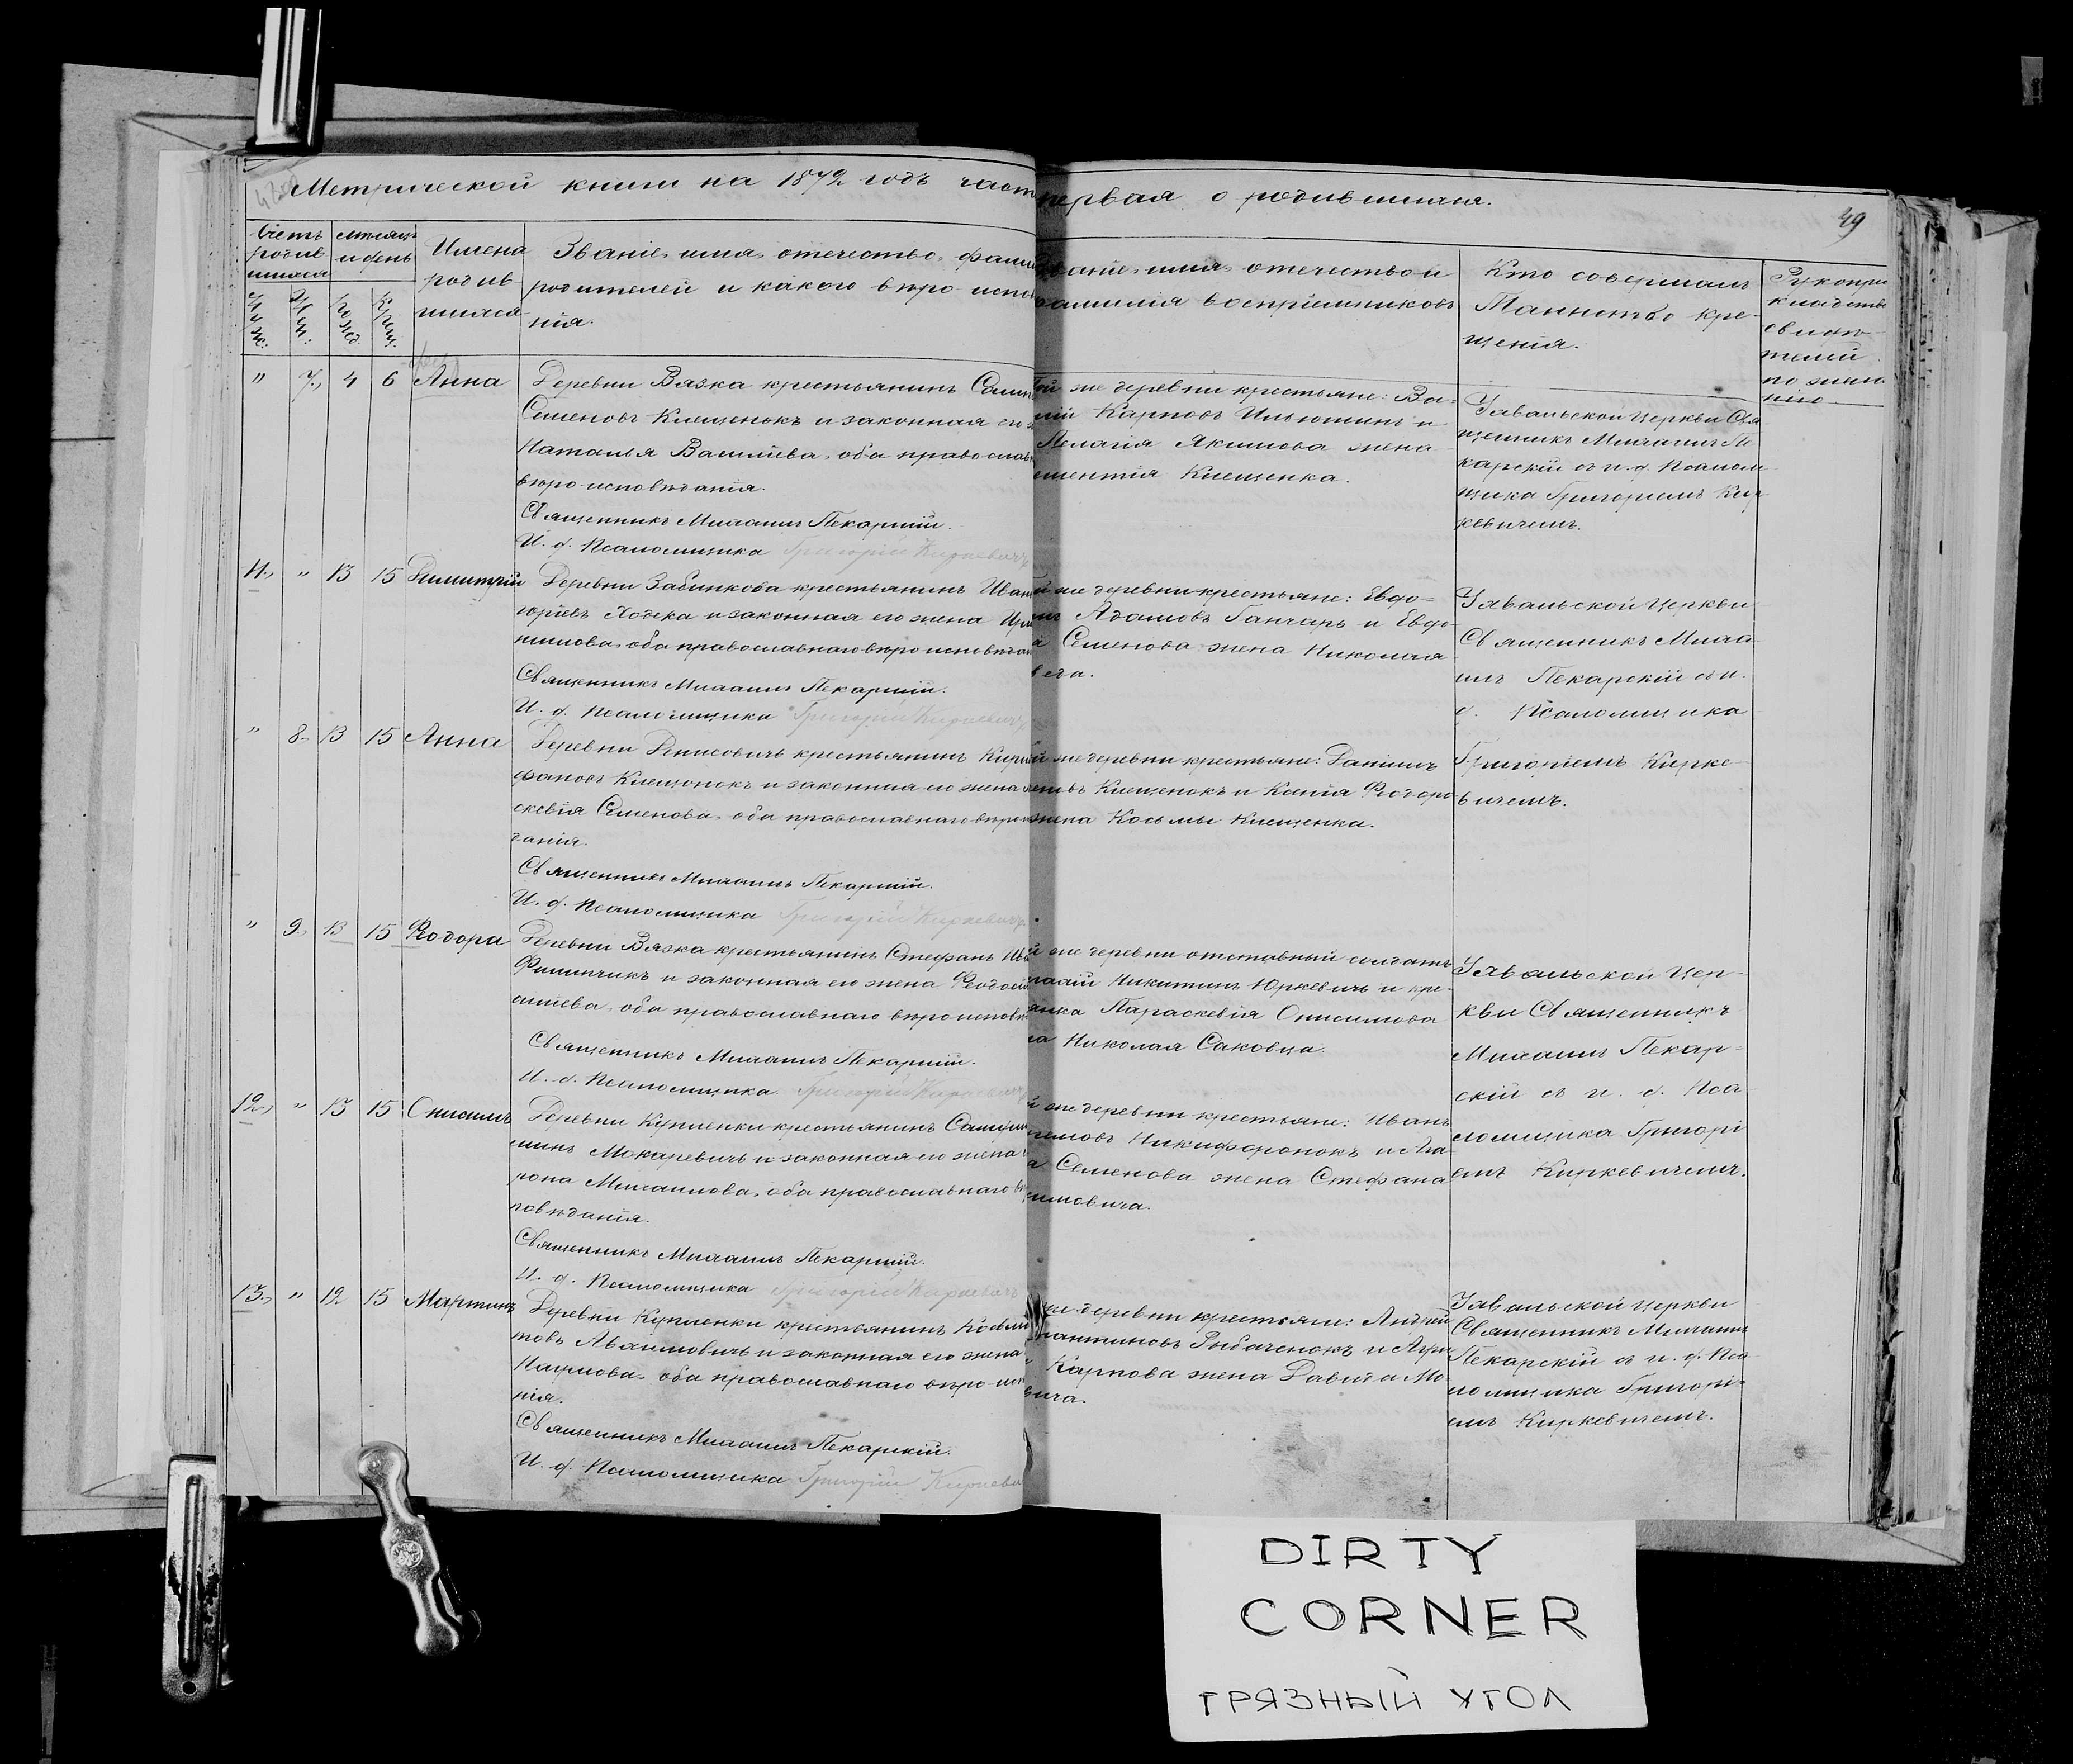 Метрической книги на 1872 годъ част первая о родившихся.
49
Счетъ родив шихся
мѣсяцъ и день
Имена
родив
шихся
Званіе, имя, отечество, фами
родителей и какого вѣро испо
нія.
Званіе, имя, отечество и
фамилія воспріемниковъ
Кто совершалъ
Таинство кре-
щенія.
Рукопри
кладство
свидѣ-
телей
по жела
нію
" 7., 4 6 Анна
Деревни Вязка крестьянинъ
Семеновъ Клещенокъ и законная его
Наталья Васильева, оба православ
вѣро исповѣданія.
Священникъ Михаилъ Пекарскій.
И. д. Псаломщика Григорій Киркевичъ
той же деревни крестьяне: Ва-
лій Карповъ Ильютинъ и
Пелагія Якимова жена
ментія Клещенка.
Священникъ Михаилъ Пе
карскій съ и. д. Псалом
щика Григоріемъ Кир
кевичемъ.
11., " 13 15 Димитрій
Деревни Забинкова крестьянинъ Иван
горіевъ Ходека и законная его жена
нимова, оба православнаго вѣро исповѣдан
Священникъ Михаилъ Пекарскій.
И. д. Псаломщика Григорій Киркевичъ
й же деревни крестьяне: Евдо-
Адамовъ Ганчаръ и Евдо
а Семенова жена Николая
веда.
Церкви
Священникъ Миха
илъ Пекарскій съ и.
д. Псаломщика
Григоріемъ Кирке
вичемъ.
" 8. 13 15 Анна
Деревни Денисовичъ крестьянинъ Кири
фановъ Клещонокъ и законная его жена
скевія Семенова, оба православнаго вѣро
данія.
Священникъ Михаилъ Пекарскій.
И. д. Псаломщика Григорій Киркевичъ
й же деревни крестьяне: Даніилъ
новъ Клещенокъ и Ксенія Ѳеодоро
жена Косьмы Клещенка.
" 9., 13 15 Ѳеодора
Деревни Вязка крестьянинъ Стефанъ Ива
Филипчикъ и законная его жена Ѳеодосі
силіева, оба православнаго вѣро исповѣ
Священникъ Михаилъ Пекарскій.
И. д. Псаломщика Григорій Киркевичъ
й же деревни отставный солдатъ
Никитинъ Юркевичъ и кре-
янка Параскевія Онисимова
на Николая Саковца.
Цер-
кви Священникъ
Михаилъ Пекар-
скій съ и. д. Пса
ломщика Григорі
емъ Киркевичемъ.
12., " 13 15 Онисимъ
Деревни Купленки крестьянинъ
минъ Мокаревичъ и законная его жена
рона Михаилова, оба православнаго вѣ
повѣданія.
Священникъ Михаилъ Пекарскій.
И. д. Псаломщика Григорій Киркевичъ
й же деревни крестьяне: Иванъ
Никифоронокъ и Ага
а Семенова жена Стефана
имовича.
13., " 12 15 Мартинъ
Деревни Купленки крестьянинъ Косьма
товъ Авхимовичъ и законная его жена
Наумова, оба православнаго вѣро исп
нія.
Священникъ Михаилъ Пекарскій.
И. д. Псаломщика Григорій Киркеви
же деревни крестьяне: Андрей
стантиновъ Рыбаченокъ и Агри
Карпова жена Давида Мо-
вича.
Церкви
Священникъ Михаилъ
Пекарскій съ и. д. Пса
ломщика Григорі-
емъ Киркевичемъ.
DIRTY
CORNER
ГРЯЗНЫЙ УГОЛ